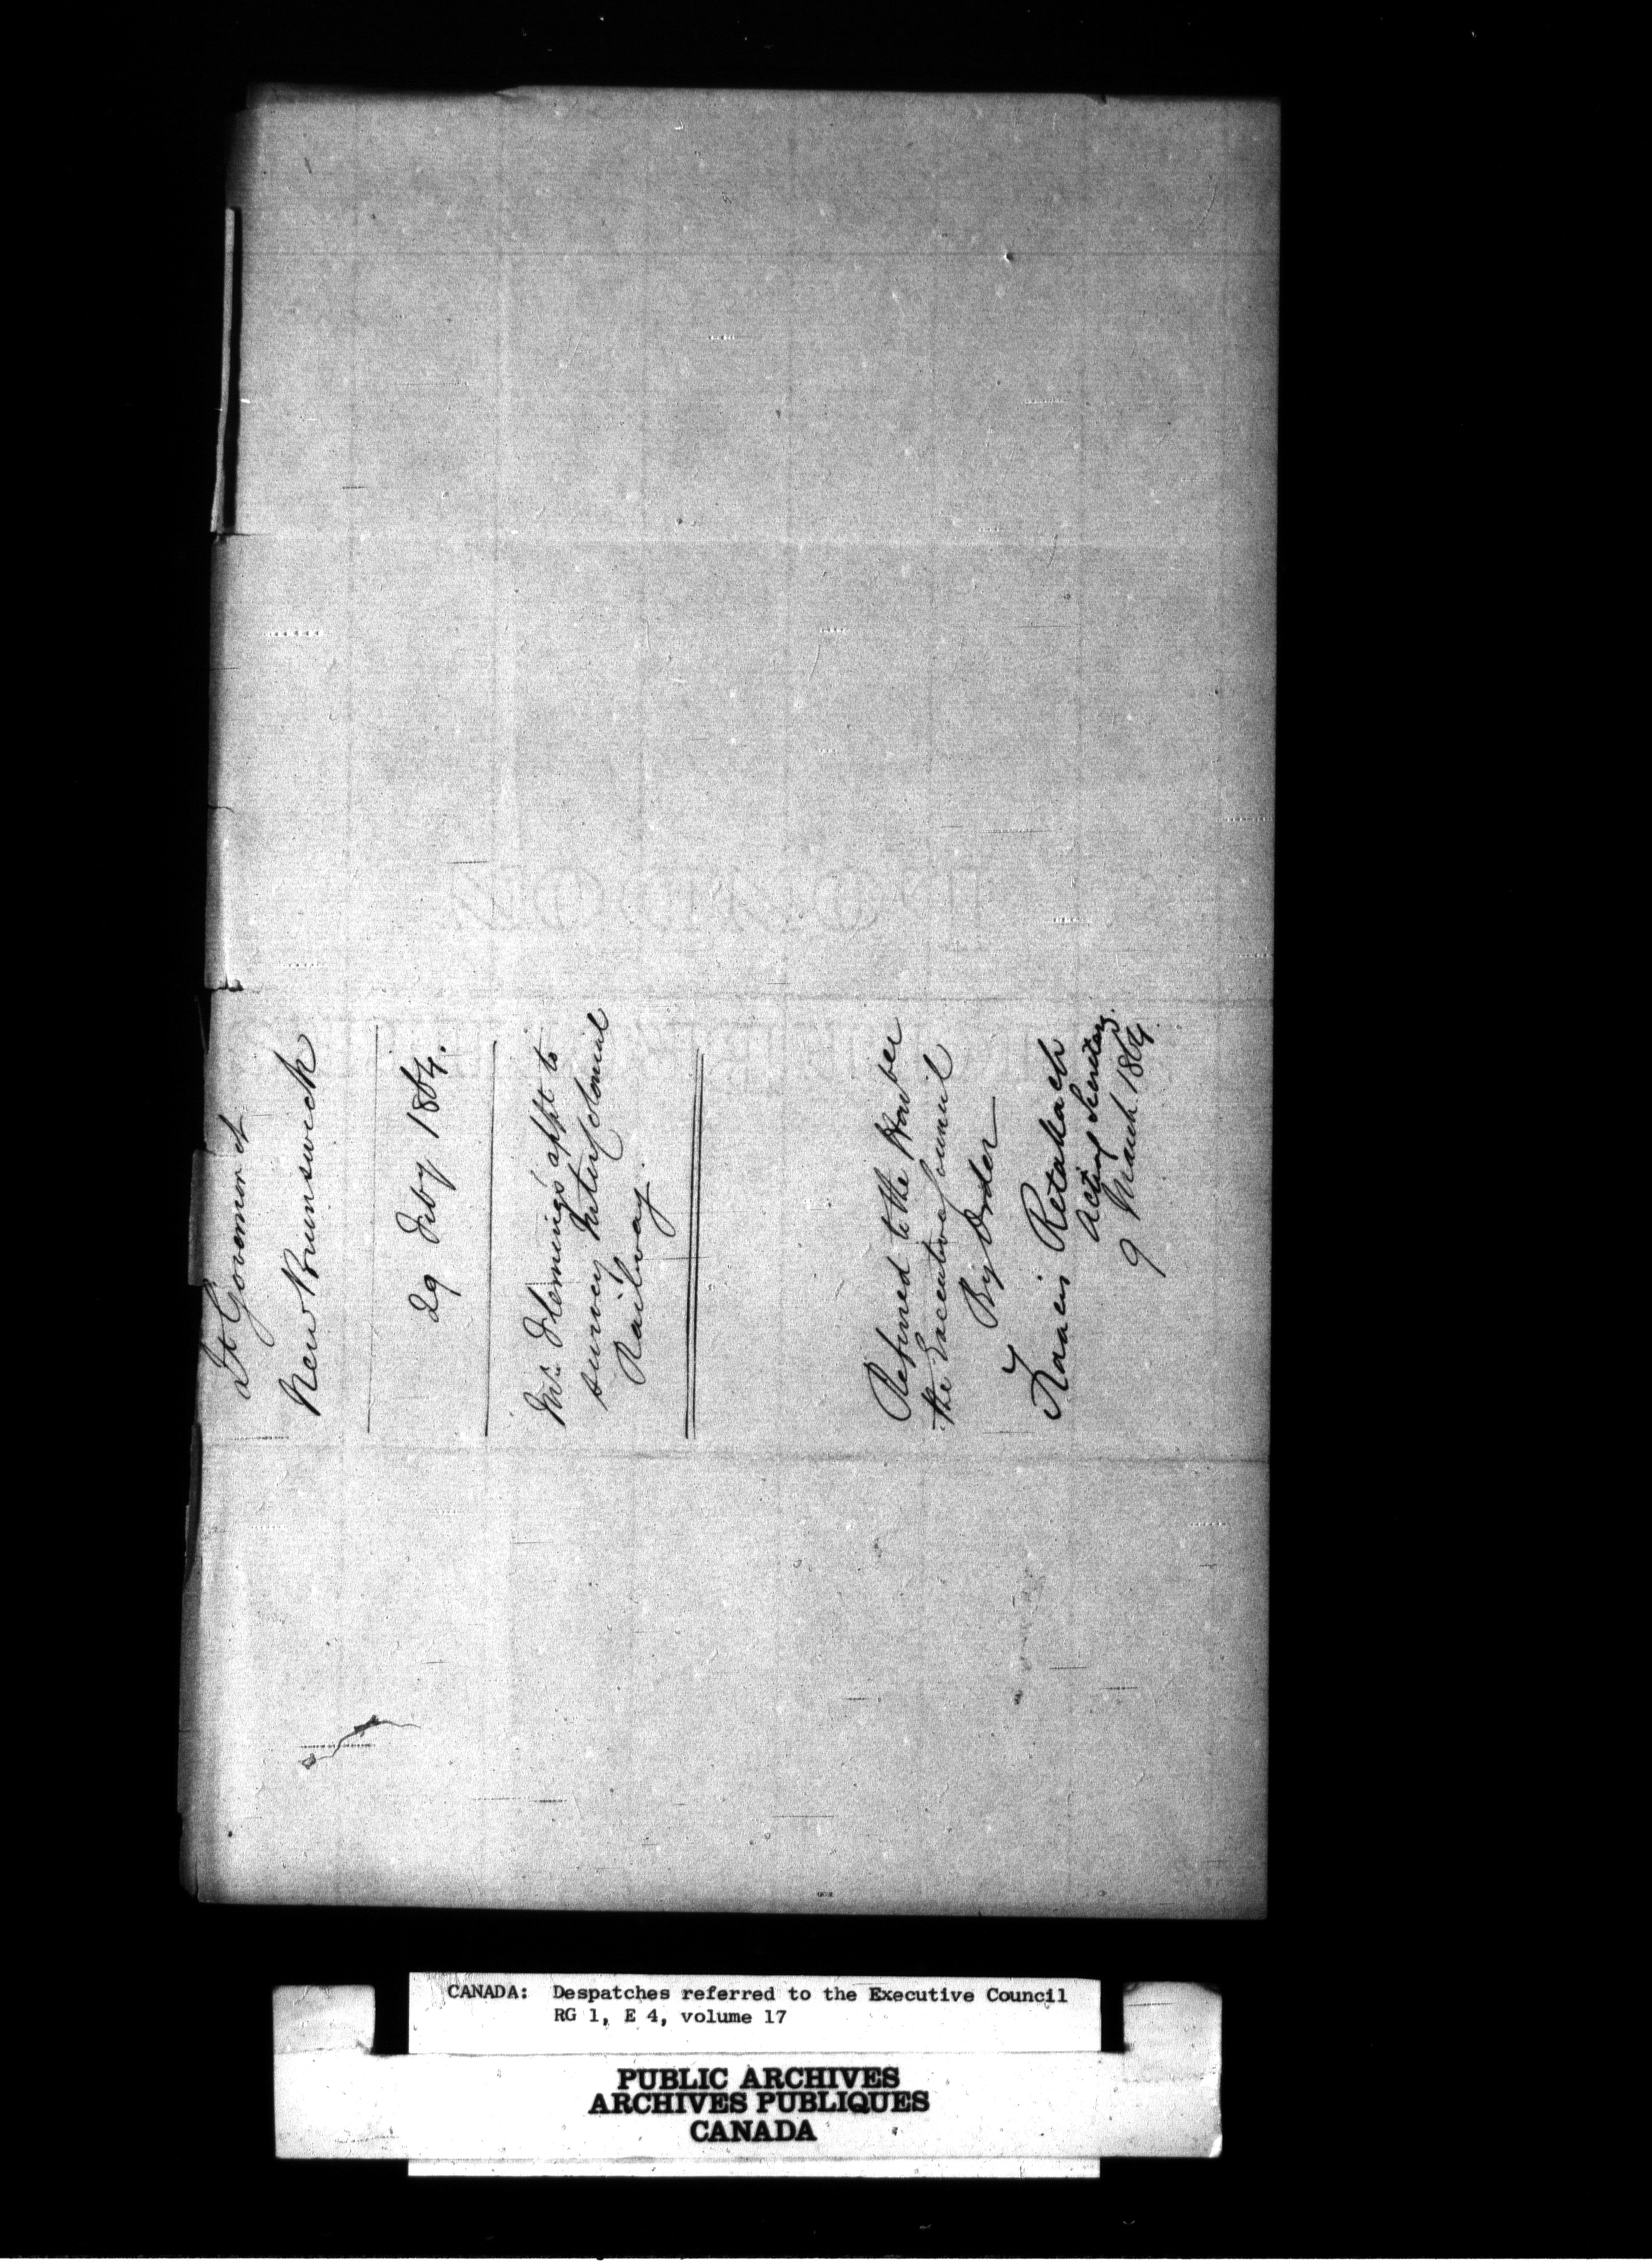 Lt Governor of
New Brunswick
29 Feby 1864.
Mr. Flemings' appt to
survey Intercolonial
Railway.
Referred to the Honble
the Executive Council
By Order
Francis Retallack
Acting Secretary.
9 March 1864.
CANADA: Despatches referred to the Executive Council
RG 1, E 4, volume 17
PUBLIC ARCHIVES
ARCHIVES PUBLIQUES
CANADA